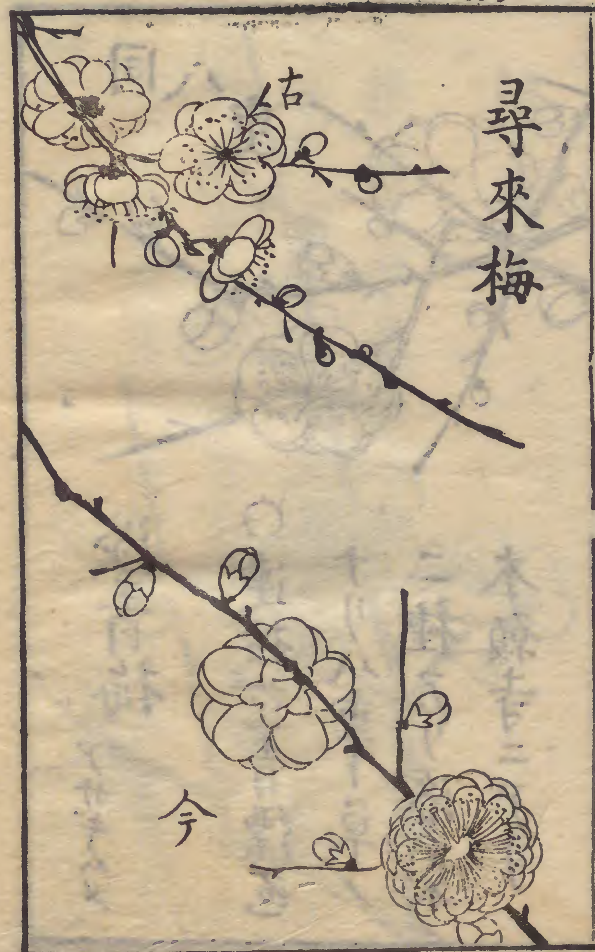 尋來梅
古
今